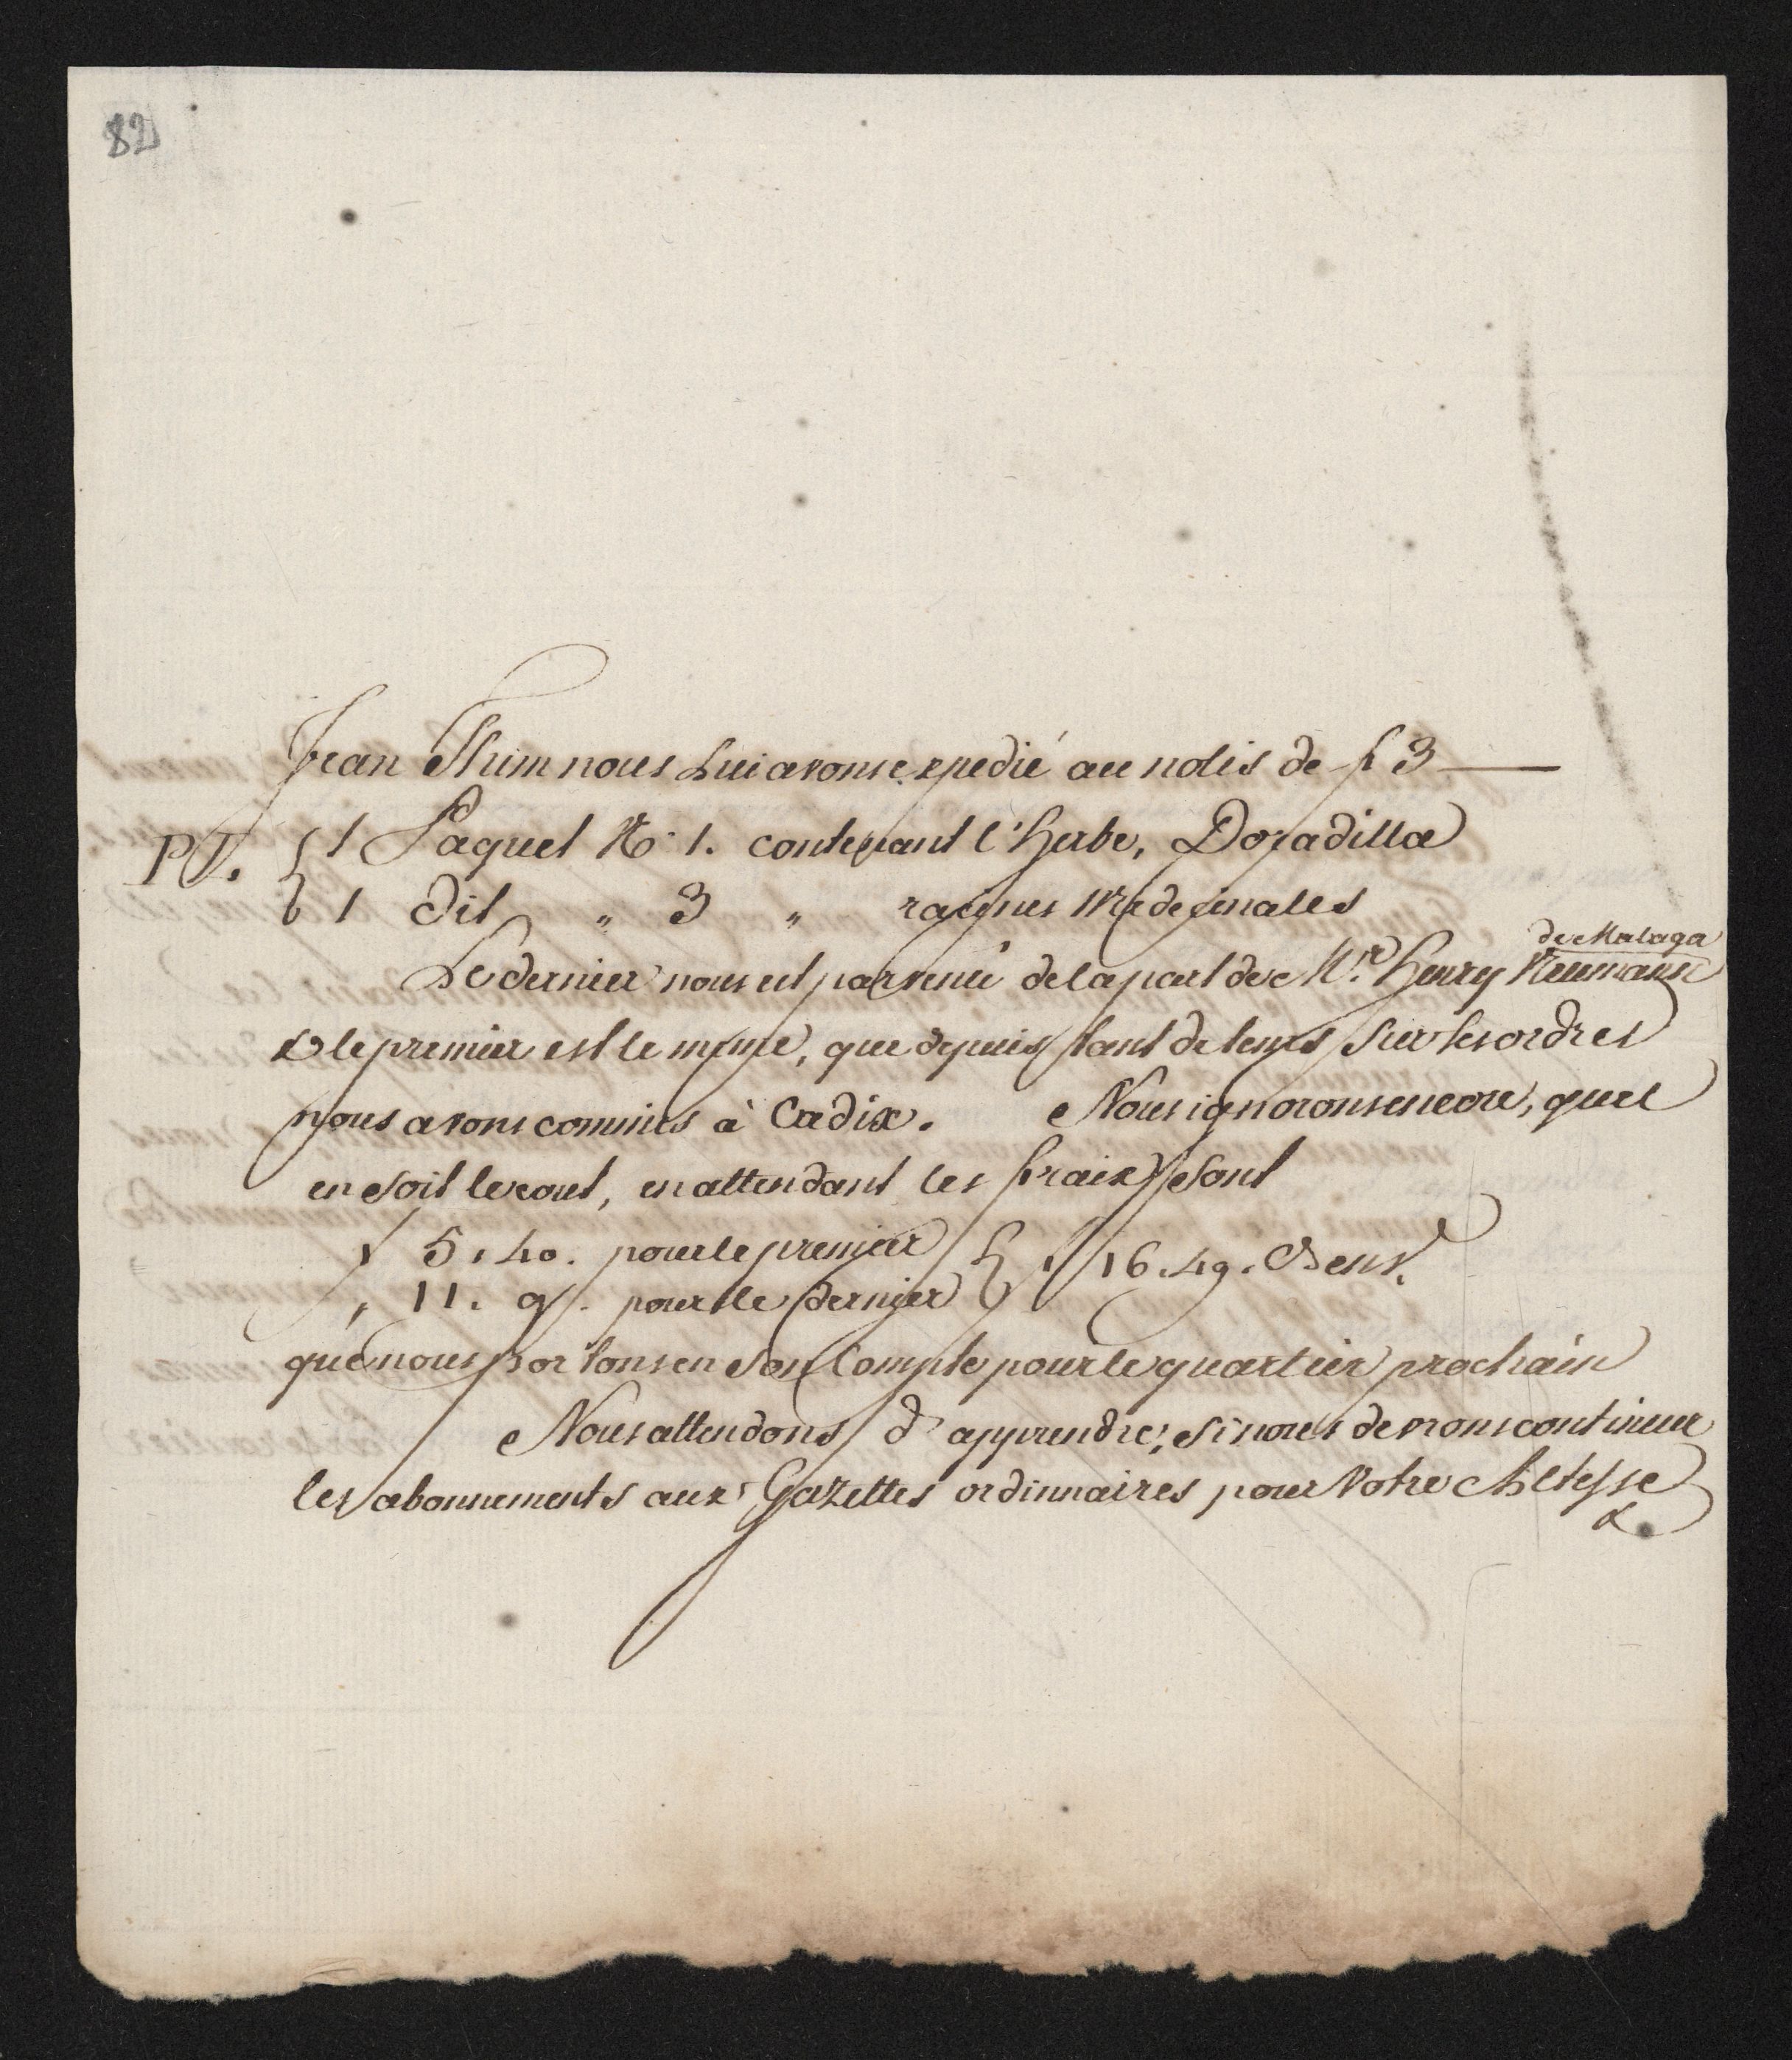 82
Jean Thim nous Lui avons expedié au nolis de f 3 —
PT. { 1 Paquet No 1. contenant l'herbe, Doradilla
{ 1 dit " 3 " racines Medecinales
de Malaga
Le dernier nous est parvenû de la part de Mr. Henry Neumann
& le premier est le mýme, que depuis tant de tems sur les ordres
nous avons commis à Cadix. Nous ignorons encore, quel
en soit le cout, en attendant les fraix sont
f 5. 40. pour le premier } f 16. 49. Benv.
" 11. 9. pour le dernier }
que nous portons en Son Compte pour le quartier prochain
Nous attendons d'apprendre, si nous devrons continuer
les abonnements aux Gazettes ordinnaires pour Votre Altesse
&